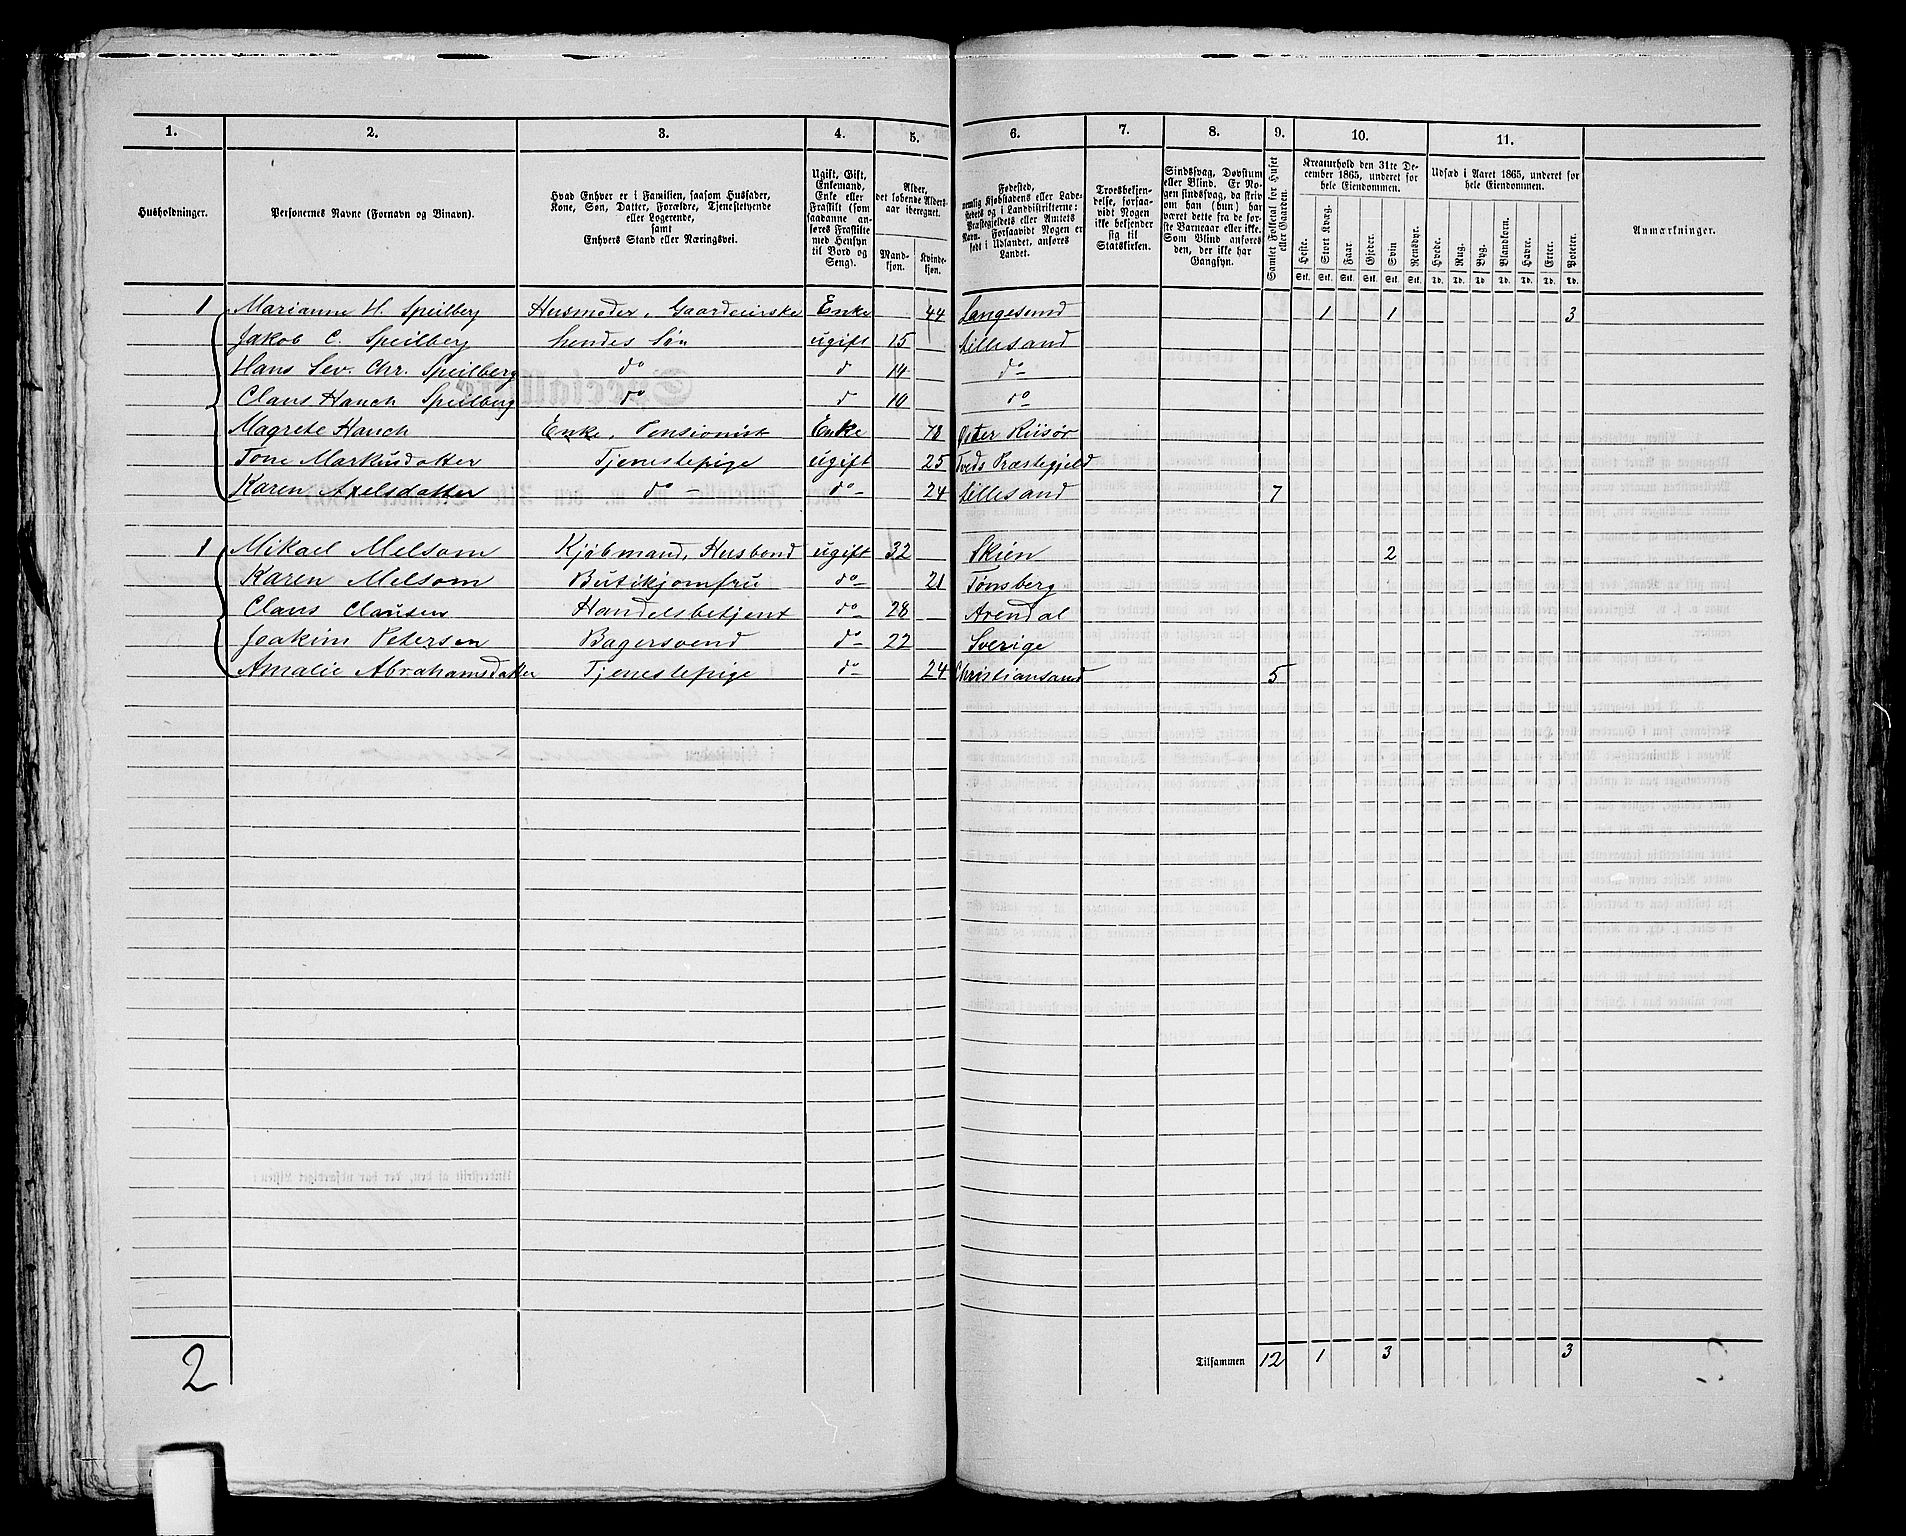 1. 2. 3. 4. 5. 6. 7. 8. 9. 10. 11.
Husholdninger.
Personernes Navne (Fornavn og Binavn).
Hvad Enhver er i Familien, saasom Husfader,
Kone, Søn, Datter, Forældre, Tjenestetyende
eller Logerende,
samt
Enhvers Stand eller Næringsvei.
Ugift, Gift,
Enkemand,
Enke eller
Fraskilt (som
saadanne an-
føres Fraskilte
med Hensyn
til Bord og
Seng).
Alder,
det løbende Alders-
aar iberegnet.
Mand-
kjøn.
Kvinde-
kjøn.
Fødested,
nemlig Kjøbstadens eller Lade-
stedets og i Landdistrikterne:
Præstegjeldets eller Amtets
Navn. Forsaavidt Nogen er
født i Udlandet, anføres
Landet.
Troesbekjen-
delse, forsaa-
vidt Nogen
ikke bekjender
sig til
Statskirken.
Sindssvag, Døvstum
eller Blind. Er No-
gen sindssvag, da skriv
om han (hun) har
været dette fra de før-
ste Barneaar eller ikke.
Som Blind anføres
den, der ikke har
Gangsyn.
Samlet Folketal for Huset
eller Gaarden.
Kreaturhold den 31te De-
cember 1865, underet for
hele Eiendommen.
Heste. Stort Kvæg. Faar. Gjeder. Svin Rensdyr.
Stk. Stk. Stk. Stk. Stk. Stk.
Udsæd i Aaret 1865, underet for
hele Eiendommen.
Hvede. Rug. Byg. Blandkorn. Havre. Erter. Poteter.
Td. Td. Td. Td. Td. Td. Td.
Anmærkninger.
1 Marianne H. Speilberg Husmoder, Gaardeierske Enke 44 Langesund 1 1 3
Jakob C. Speilberg hendes Søn ugift 15 Lillesand
Hans Sev. Chr. Speilberg do d 14 do
Claus Hauch Speilberg do d 10 do
Magrete Hauch Enke, Pensionist Enke 78 Øster Riisør
Tone Markusdatter Tjenestepige ugift 25 Tveds Præstegjeld
Karen Axelsdatter do do 24 Lillesand 7
1 Mikael Melsom Kjøbmand, Husbond ugift 32 Skien 2
Karen Melsom Butikjomfru do 21 Tønsberg
Claus Clausen Handelsbetjent do 28 Arendal
Joakim Petersen Bagersvend do 22 Sverige
Amalie Abrahamsdatter Tjenestepige do 24 Christiansand 5
2 Tilsammen 12 1 3 3